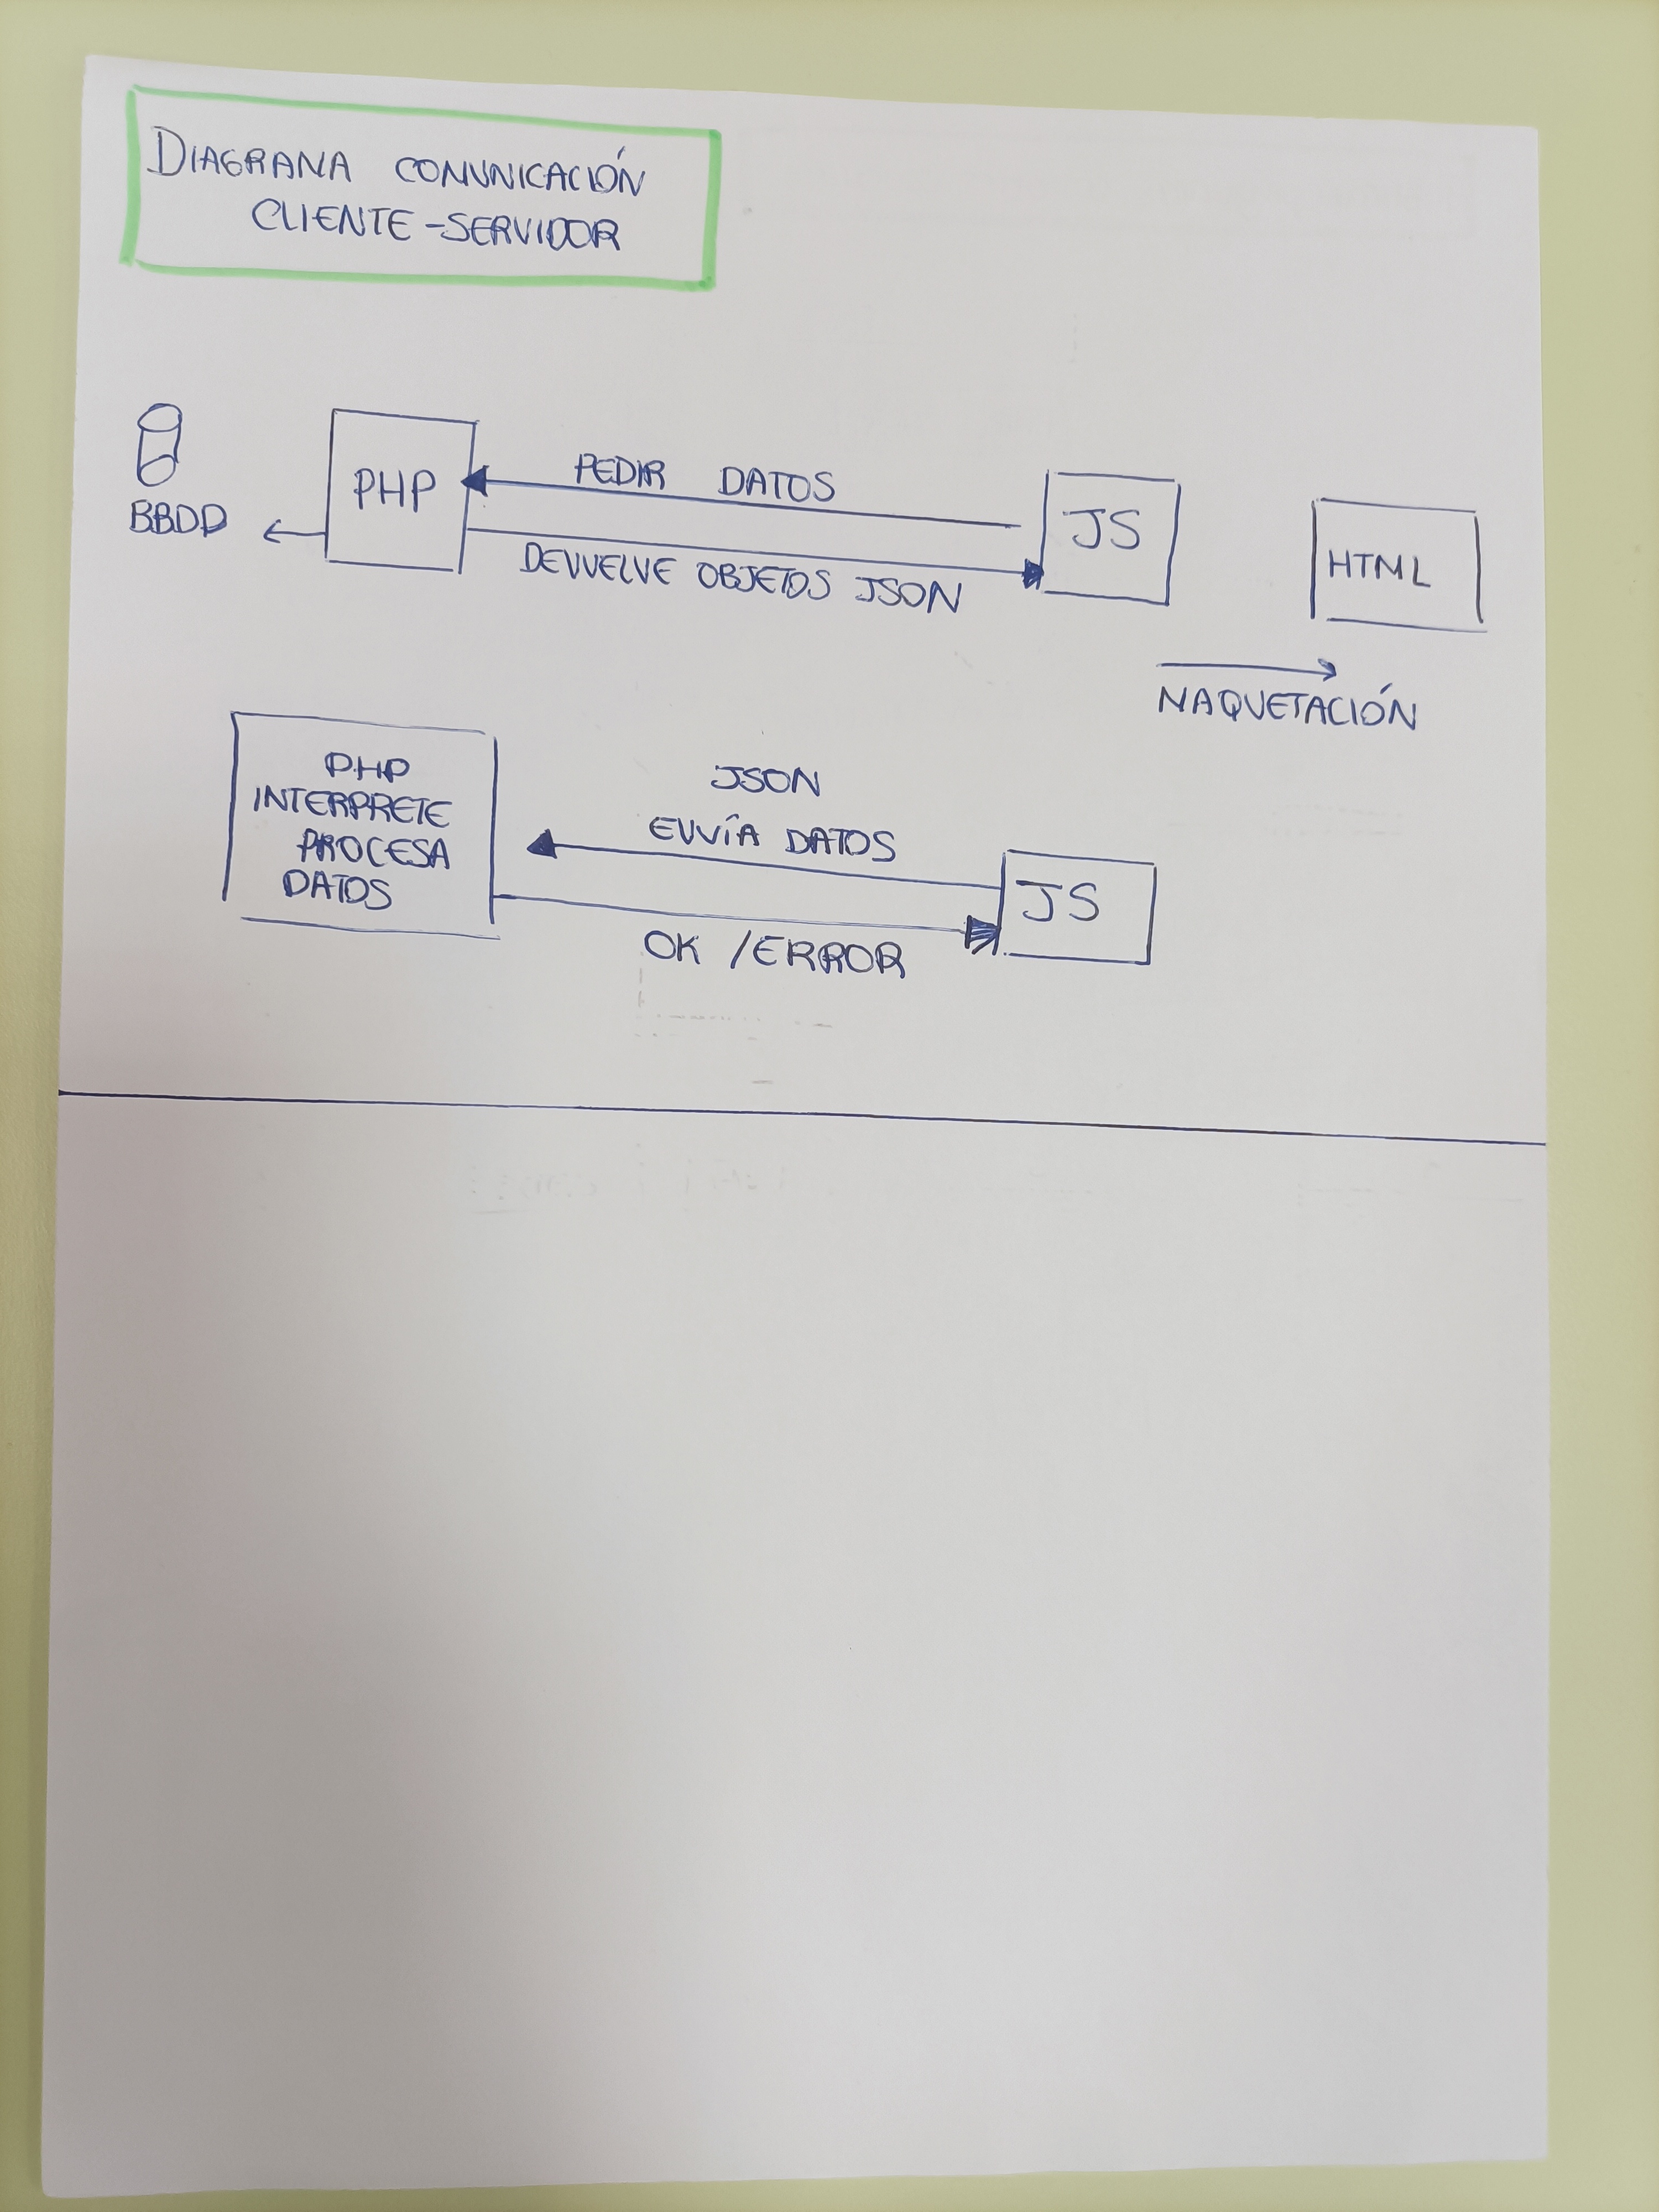 DIAGRAMA COMUNICACIÓN
CLIENTE-SERVIDOR
BBDD
PHP
PEDIR DATOS
DEVUELVE OBJETOS JSON
JS
HTML
MAQUETACIÓN
PHP
INTERPRETE
PROCESA
DATOS
JSON
ENVÍA DATOS
OK /ERROR
JS